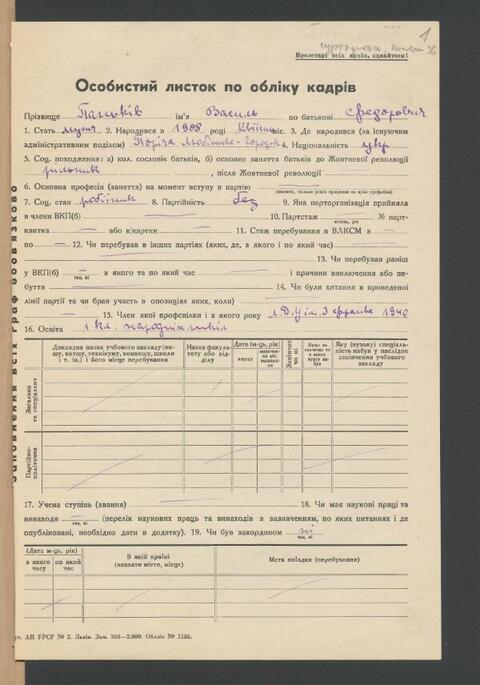 1
Пролетарі всіх країн, єднайтеся!
Особистий листок по обліку кадрів
Прізвище Паньків ім'я Василь по батькові Федорович
1. Стать мужч. 2. Народився в 1908 році квітень міс. 3. Де народився (за існуючим
адміністративним поділом) 4. Національність укр
5. Соц. походження: а) кол. сословіє батьків, б) основне заняття батьків до Жовтневої революції
рільник, після Жовтневої революції
6. Основна професія (заняття) на момент вступу в партію
7. Соц. стан робітник 8. Партійність без 9. Яка парторганізація прийняла
в члени ВКП(б) — 10. Партстаж — № парт-
квитка — або к/картки — 11. Стаж перебування в ВЛКСМ з —
по — 12. Чи перебував в інших партіях (яких, де, з якого і по який час)
13. Чи перебував раніш
у ВКП(б) — з якого та по який час — і причини виключення або ви-
буття 14. Чи були хитання в проведенні
лінії партії та чи брав участь в опозиціях яких, коли)
15. Член якої профспілки і з якого року 1940
16. Освіта 1 кл. народної школи
Докладна назва учбового закладу (ви-
шу, втишу, технікуму, комвишу, школи
і т. ін.) і його місце перебування
Назва факуль-
тету або від-
ділу
Дата (м-ць, рік)
вступу
Закінчив
чи ні
Яку (вузьку) спеціаль-
ність набув у наслідок
закінчення учбового
закладу
Загальна
та спеціальна
Партійно-
політична
17. Учена ступінь (звання) 18. Чи має наукові праці та
винаходи — (перелік наукових праць та винаходів з зазначенням, по яких питаннях і де
так, ні
опубліковані, необхідно дати в додатку). 19. Чи був закордоном ні
так, ні
Дата (м-ць, рік)
з якого
часу
по який
час
В якій країні
(вказати місто, місце)
Мета поїздки (перебування)
АН УРСР № 2. Львів. Зам. 368—2.000. Обліт № 1186.
Заповнення всіх граф обов'язково